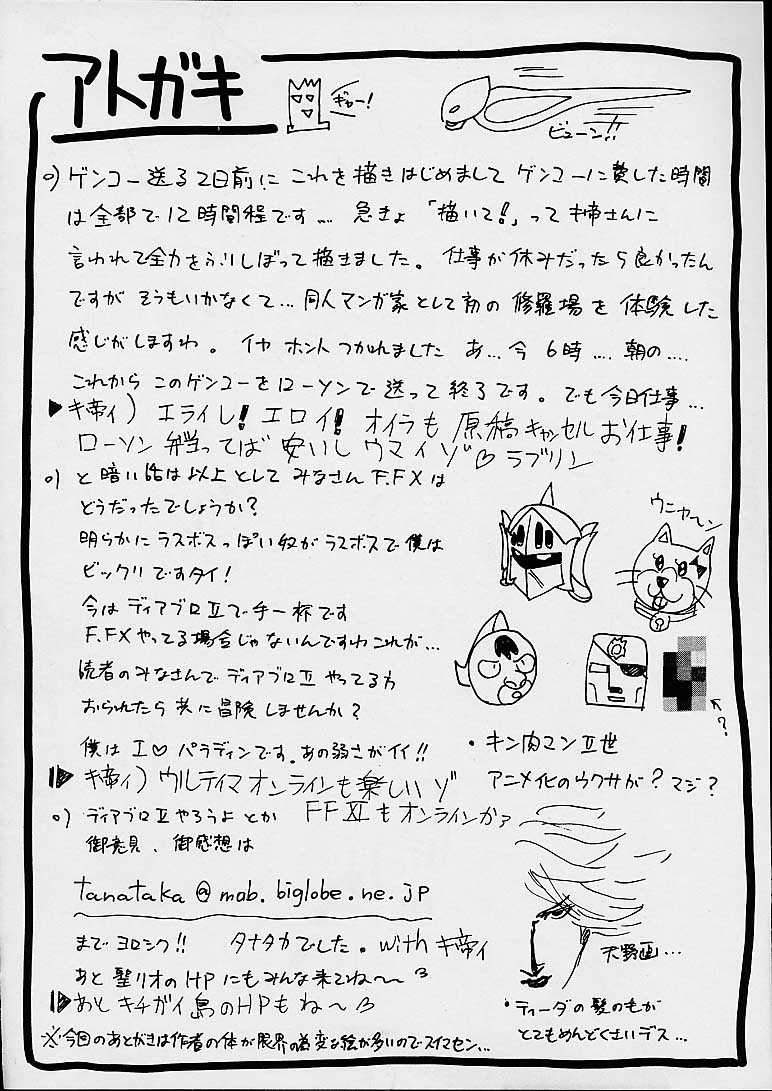 アトガキ
ギャー!
ビューン!!
○) ゲンコー送る2日前に これを描きはじめまして ゲンコーに費した時間
は全部で12時間程です…. 急きょ 「描いて!」って キ帝さんに
言われて全力をふりしぼって描きました。 仕事が休みだったら良かったん
ですが そうもいかなくて… 同人マンガ家として初の 修羅場を 体験した
感じがしますわ。 イヤ ホント つかれました あ… 今 6時 …. 朝の….
これから このゲンコーをローソンで送って終了です。 でも今日仕事…
▶キ帝ィ) エライし! エロイ! オイラも 原稿キャンセル お仕事!
ローソン弁当ってば 安いし ウマイゾ♡ ラブリン
○) と暗い話は以上として みなさん F.FXは
どうだったでしょうか?
明らかにラスボスっぽい奴がラスボスで僕は
ビックリですタイ!
今は ディアブロⅡで手一杯です
F.FXやってる場合じゃないんですわこれが…
読者のみなさんで ディアブロⅡ やってる方
おられたら 共に冒険しませんか?
僕は I♡ パラディンです。あの弱さがイイ!!
▶キ帝ィ) ウルティマオンラインも楽しいゾ
ウニャ〜ン
↖?
・キン肉マンⅡ世
アニメ化のウワサが? マジ?
○) ディアブロⅡやろうよ とか FFXIもオンラインかァ
御意見、御感想は
tanataka@mob.biglobe.ne.jp
まで ヨロシク!! タナタカでした。with キ帝ィ
あと 聖リオのHPにもみんな来てね〜
▶あと キチガイ島のHPもね〜
天野画…
・ティーダの髪のもが
とてもめんどくさいデス…
※今回のあとがきは作者の体が限界の為変な絵が多いのでスイマセン…